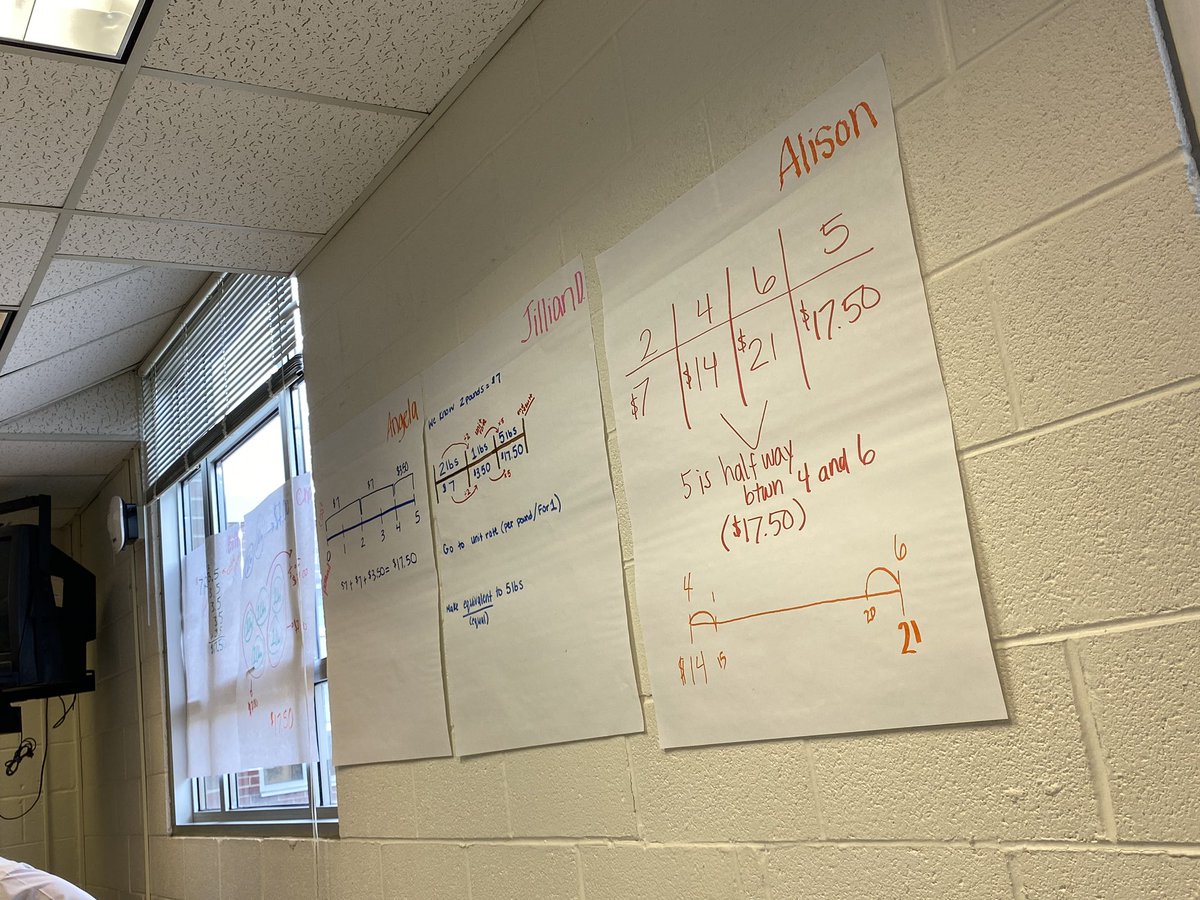 Alison
2 4 6 5
$7 $14 $21 $17.50
5 is halfway
btwn 4 and 6
($17.50)
4 1 6
$14 15 20 21
Jillian D.
We know 2 pounds = $7
2 lbs 1 lbs 5 lbs
$7 $3.50 $17.50
Go to unit rate (per pound/for 1)
Make equivalent to 5 lbs
(equal)
Angela
$7 $7 $3.50
0 1 2 3 4 5
$7 + $7 + $3.50 = $17.50
$17.50